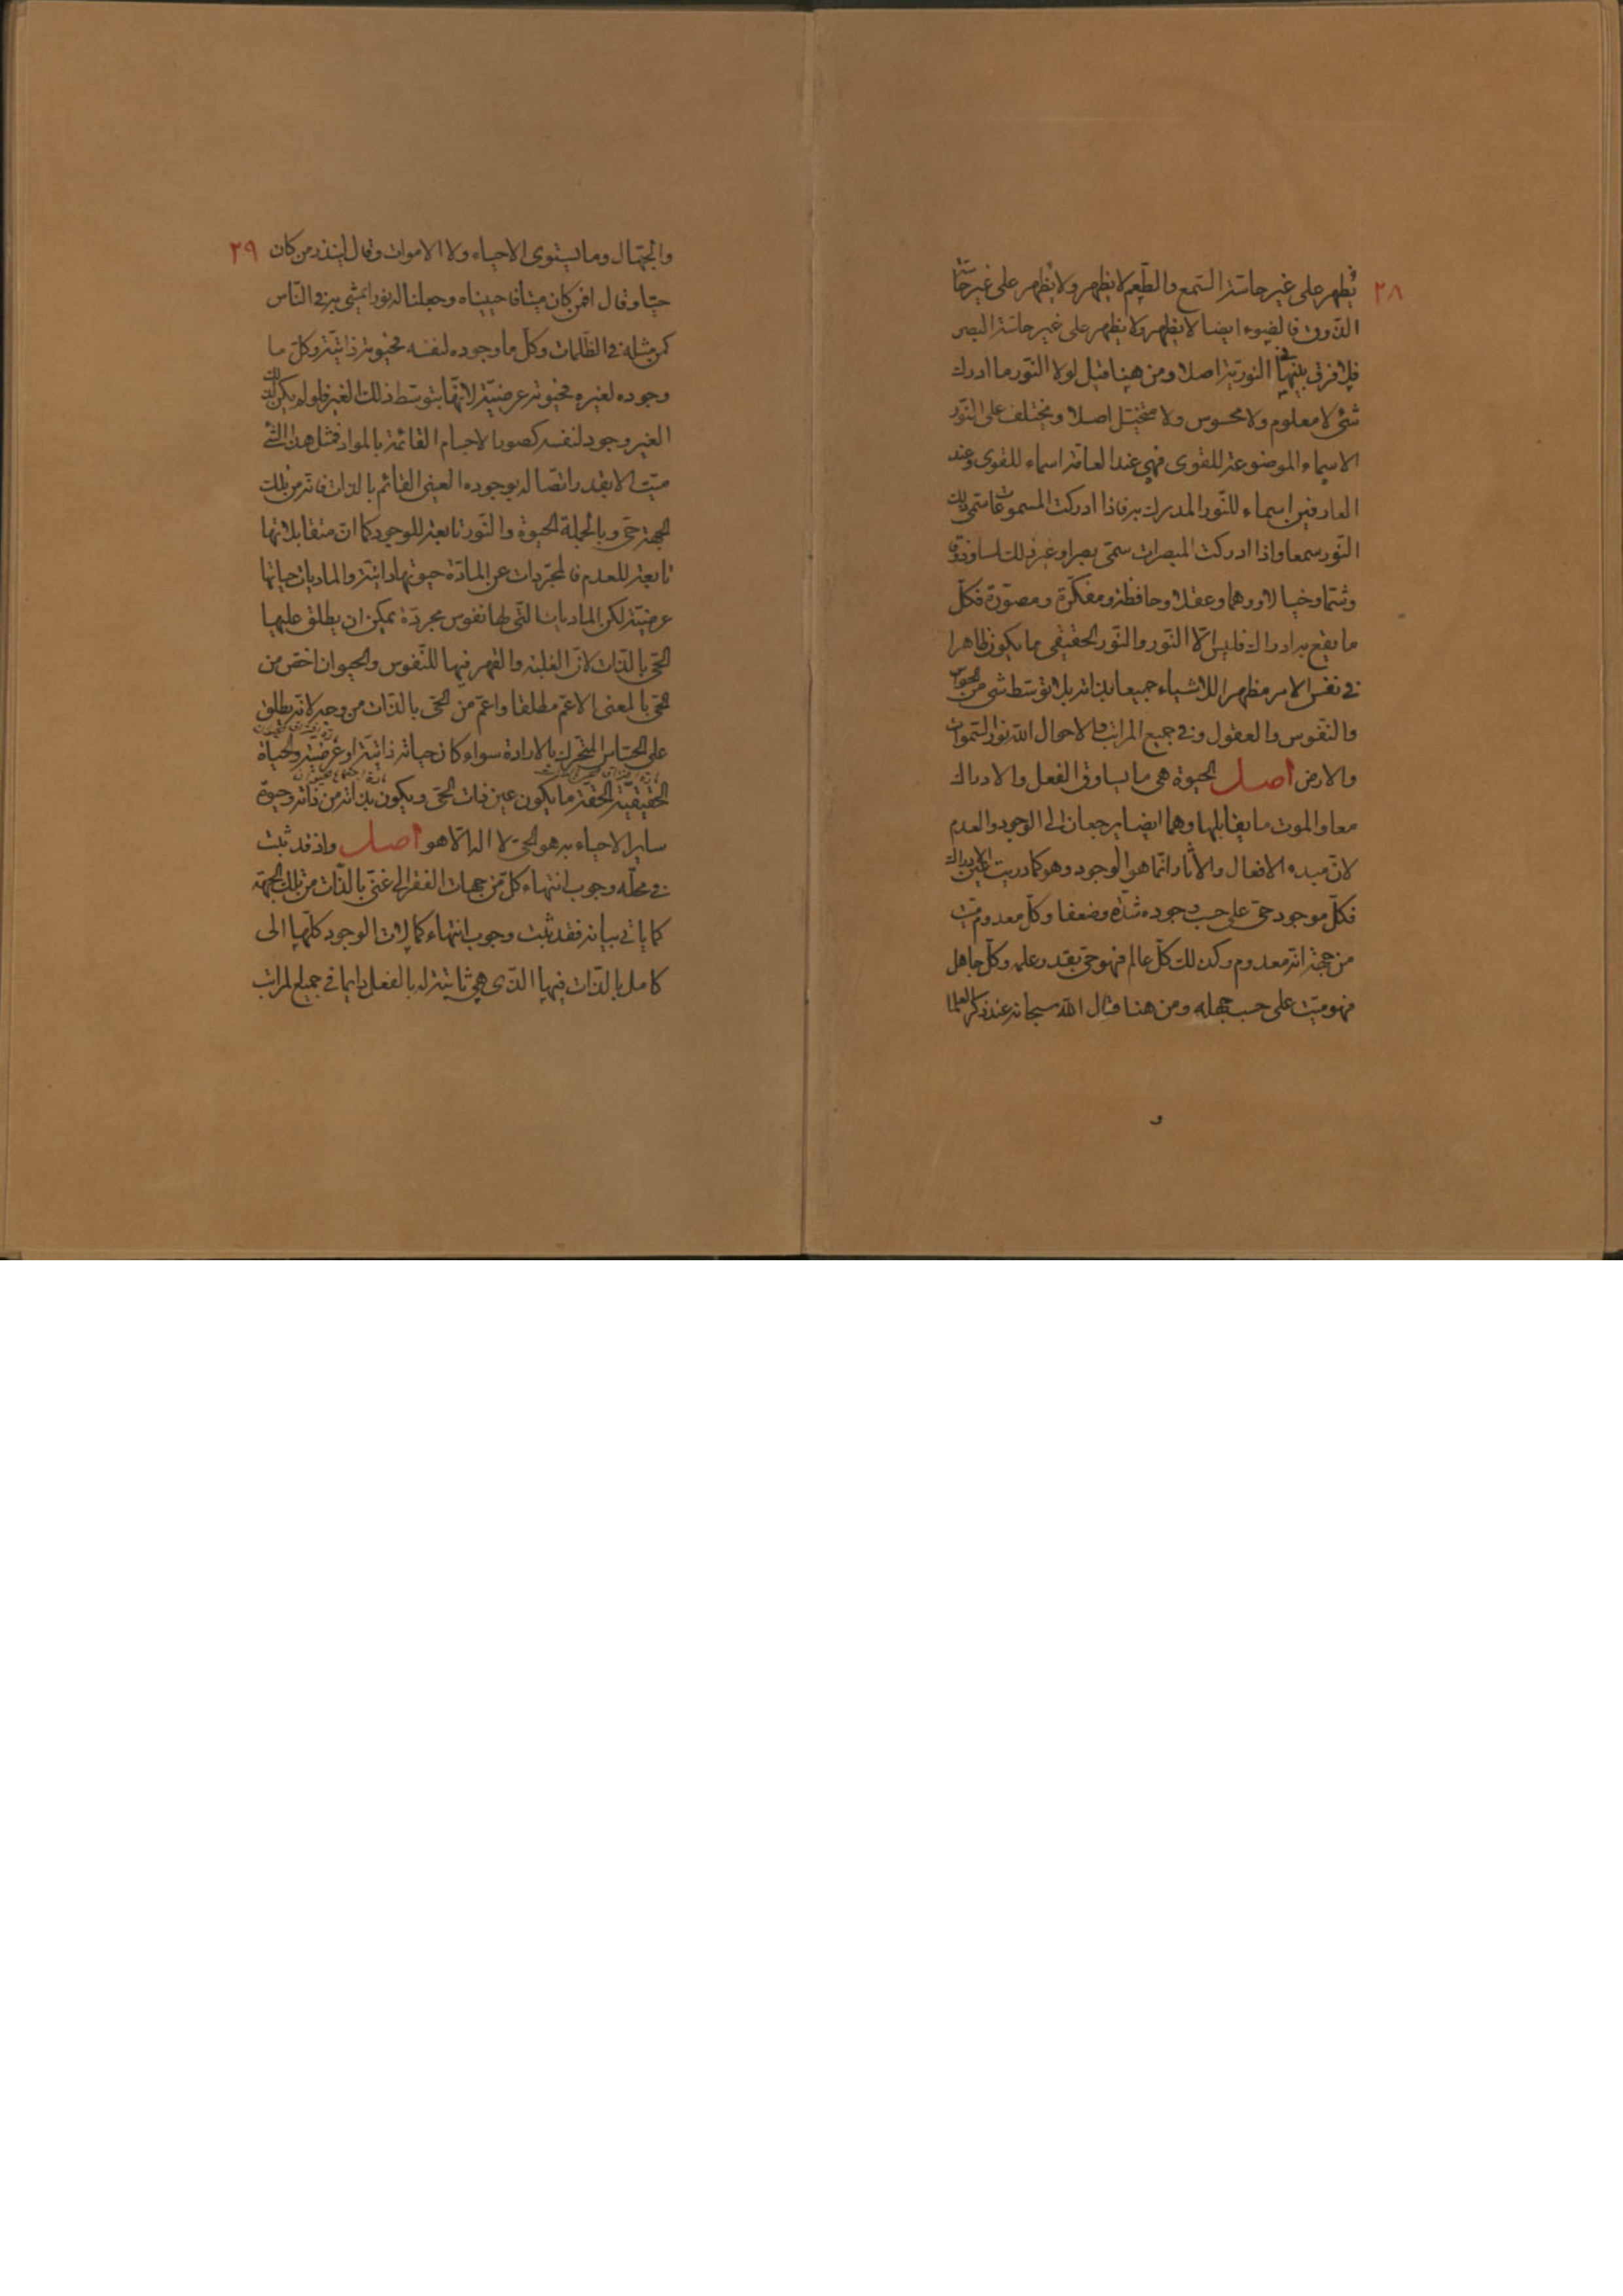 ٢٨
يُظهر على غير حاسّة السّمع والطّعم لا يظهر ولا يُظهر على غير حاسّة
الذّوق فالضوء ايضا لا يظهر ولا يظهر على غير حاسّة البصر
فلا فرق بينهما في النوريّة اصلا ومن هيهنا قيل لولا النّور ما ادرك
شئ لا معلوم ولا محسوس ولا متخيّل اصلا ويختلف على النّور
الاسماء الموضوعة للقوى فهي عند العامّة اسماء للقوى وعند
العارفين اسماء للنّور المدرك به فاذا ادركت المسموعات سمّى ذلك
النّور سمعا واذا ادركت المبصرات سمّى بصرا وغير ذلك لمسا وذوقا
وشمّا وخيالا ووهما وعقلا وحافظة ومفكّرة ومصوّرة فكلّ
ما يقع به ادراك فليس الّا النّور والنّور الحقيقى ما يكون ظاهرا
فى نفس الامر مظهرا للاشياء جميعا بذاته بلا توسّط شئ من الحواس
والنّفوس والعقول وفى جميع المراتب والاحوال اللّه نور السّموات
والارض اصل الحيوة هى ما يساوق الفعل والادراك
معا والموت ما يقابلها وهما ايضا يرجعان الى الوجود والعدم
لانّ مبدء الافعال والآثار انّما هو الوجود وهو كما دريت عين الادراك
فكلّ موجود حىّ على حسب وجوده شدّة وضعفا وكلّ معدوم ميّت
من حيث انّه معدوم وكذلك كلّ عالم فهو حىّ بقدر علمه وكلّ جاهل
فهو ميّت على حسب جهله ومن هنا قال اللّه سبحانه عند ذكر العلما
و
٢٩
والجهّال وما يستوى الاحياء ولا الاموات وقال لينذر من كان
حيّا وقال افمن كان ميتا فاحييناه وجعلنا له نورا يمشى به فى النّاس
كمن مثله فى الظّلمات وكلّ ما وجوده لنفسه فحيوته ذاتيّة وكلّ ما
وجوده لغيره فحيوته عرضيّة لانّها بتوسّط ذلك الغير فلو لم يكن لذلك
الغير وجود لنفسه كصور الاجسام القائمة بالمواد فمثل هذا الشّئ
ميّت الا بقدر اتصاله بوجوده العينى القائم بالذات فانه من تلك
الجهة حىّ وبالجملة الحيوة والنّور تابعة للوجود كما انّ متقابلاتها
تابعة للعدم فالمجرّدات عن المادّة حيوتها ذاتيّة والماديات حياتها
عرضيّة لكن الماديات الّتى لها نفوس مجردّة يمكن ان يطلق عليها
الحىّ بالذّات لانّ الغلبة والقهر فيها للنّفوس والحيوان اخصّ من
الحىّ بالمعنى الاعمّ مطلقا واعمّ من الحىّ بالذّات من وجه لانّه يطلق
على الحسّاس المتحرّك بالارادة سواء كان حياته ذاتيّة او عرضيّة والحياة
الحقيقيّة الحقّة ما يكون عين ذات الحىّ ويكون بذاته من ذاته وحيوة
ساير الاحياء به هو الحىّ لا اله الّا هو اصل واذ قد ثبت
فى محلّه وجوب انتهاء كلّ من جهات الفقر الى غنىّ بالذّات من تلك الجهة
كما يأتى بيانه فقد ثبت وجوب انتهاء كمالات الوجود كلّها الى
كامل بالذّات فيها الذّى هى ثابتة له بالفعل دايما فى جميع المراتب